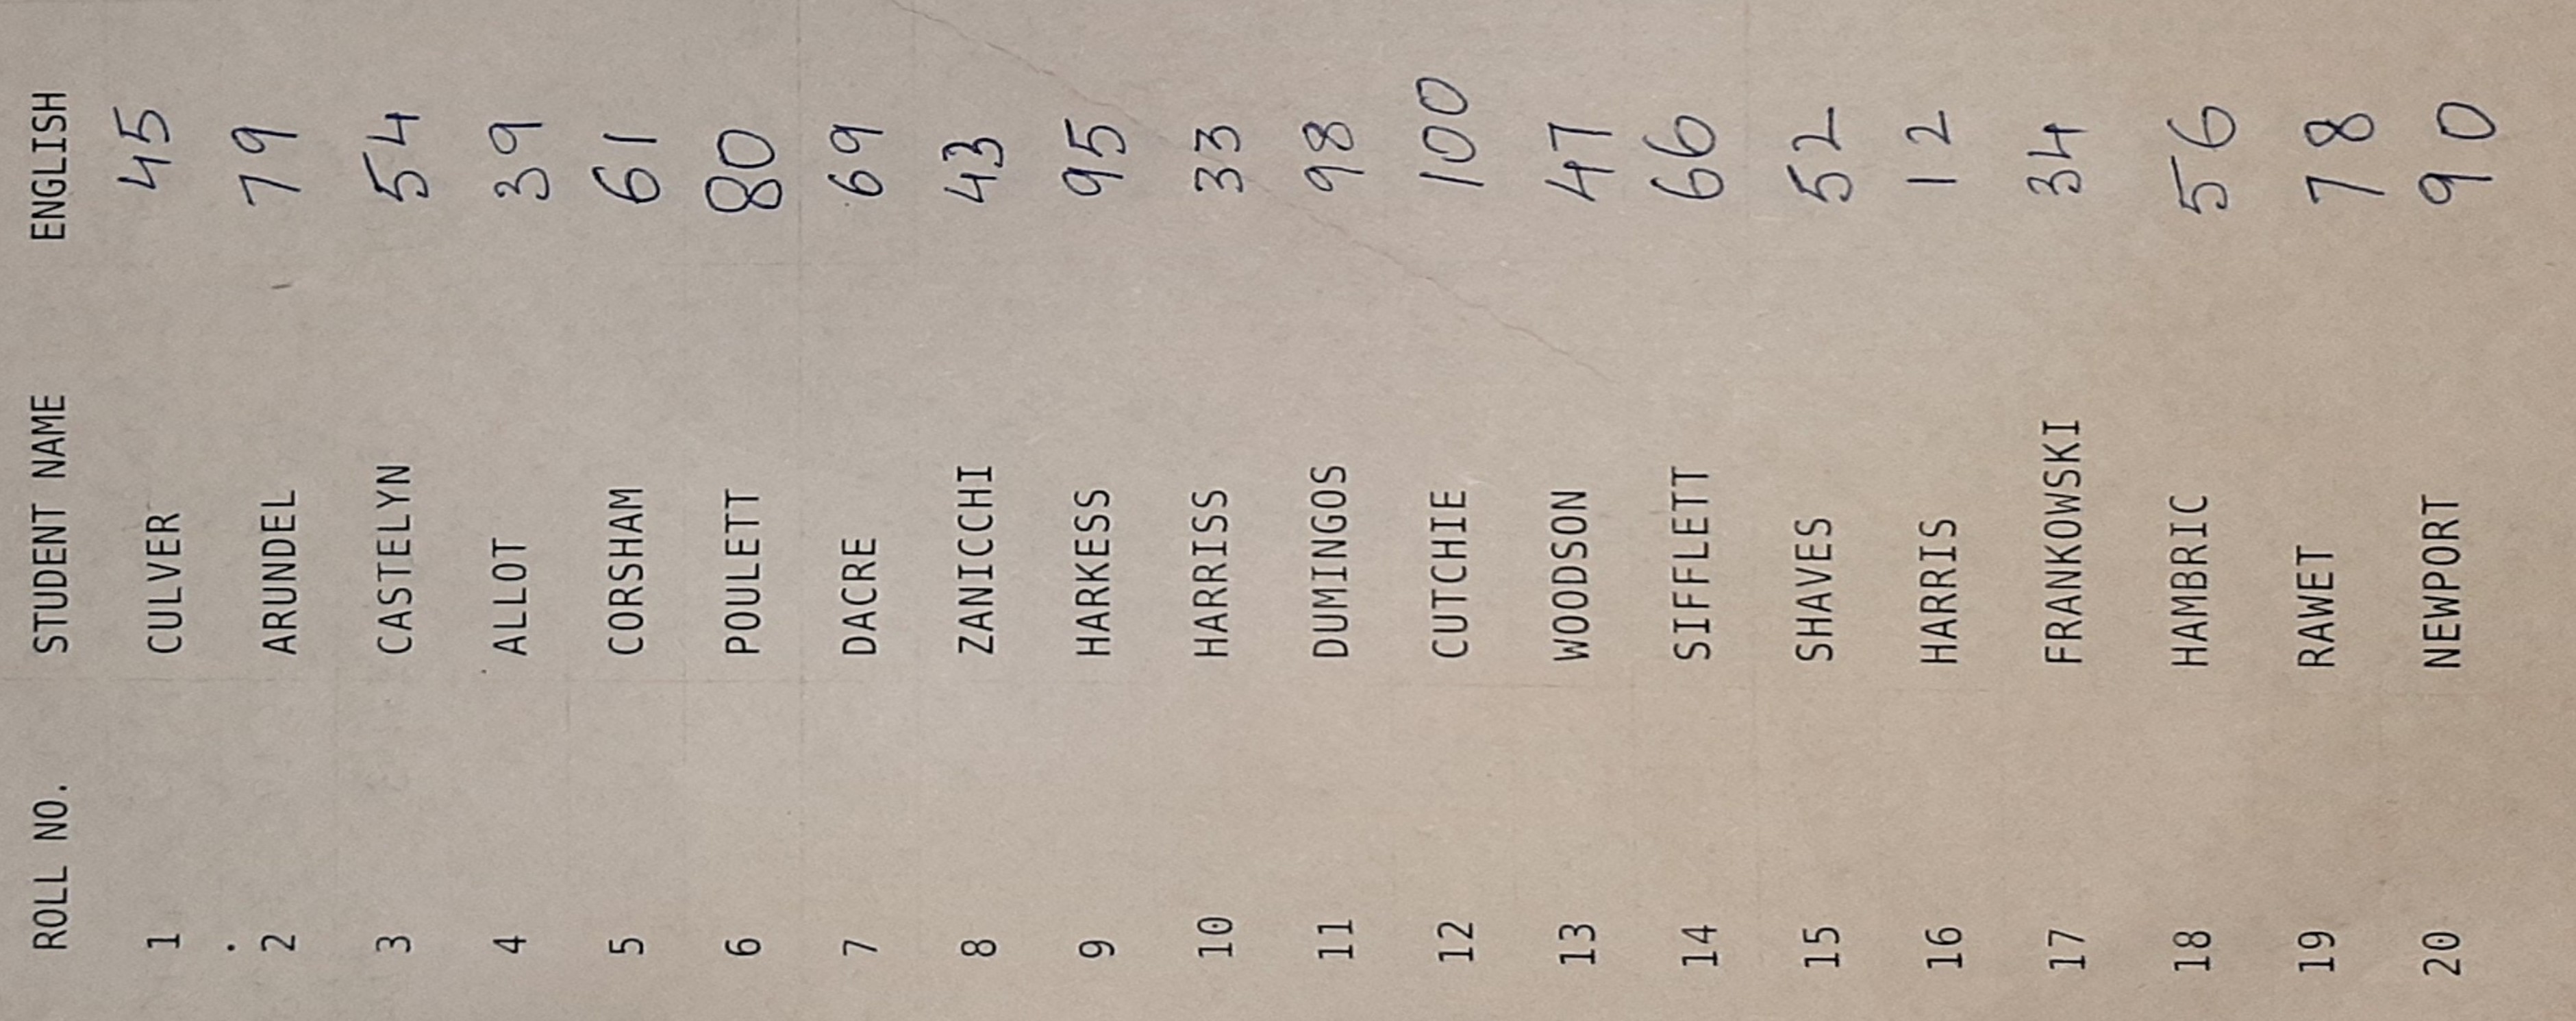 ROLL NO. STUDENT NAME ENGLISH
1 CULVER 45
2 ARUNDEL 79
3 CASTELYN 54
4 ALLOT 39
5 CORSHAM 61
6 POULETT 80
7 DACRE 69
8 ZANICCHI 43
9 HARKESS 95
10 HARRISS 33
11 DUMINGOS 98
12 CUTCHIE 100
13 WOODSON 47
14 SIFFLETT 66
15 SHAVES 52
16 HARRIS 12
17 FRANKOWSKI 34
18 HAMBRIC 56
19 RAWET 78
20 NEWPORT 90